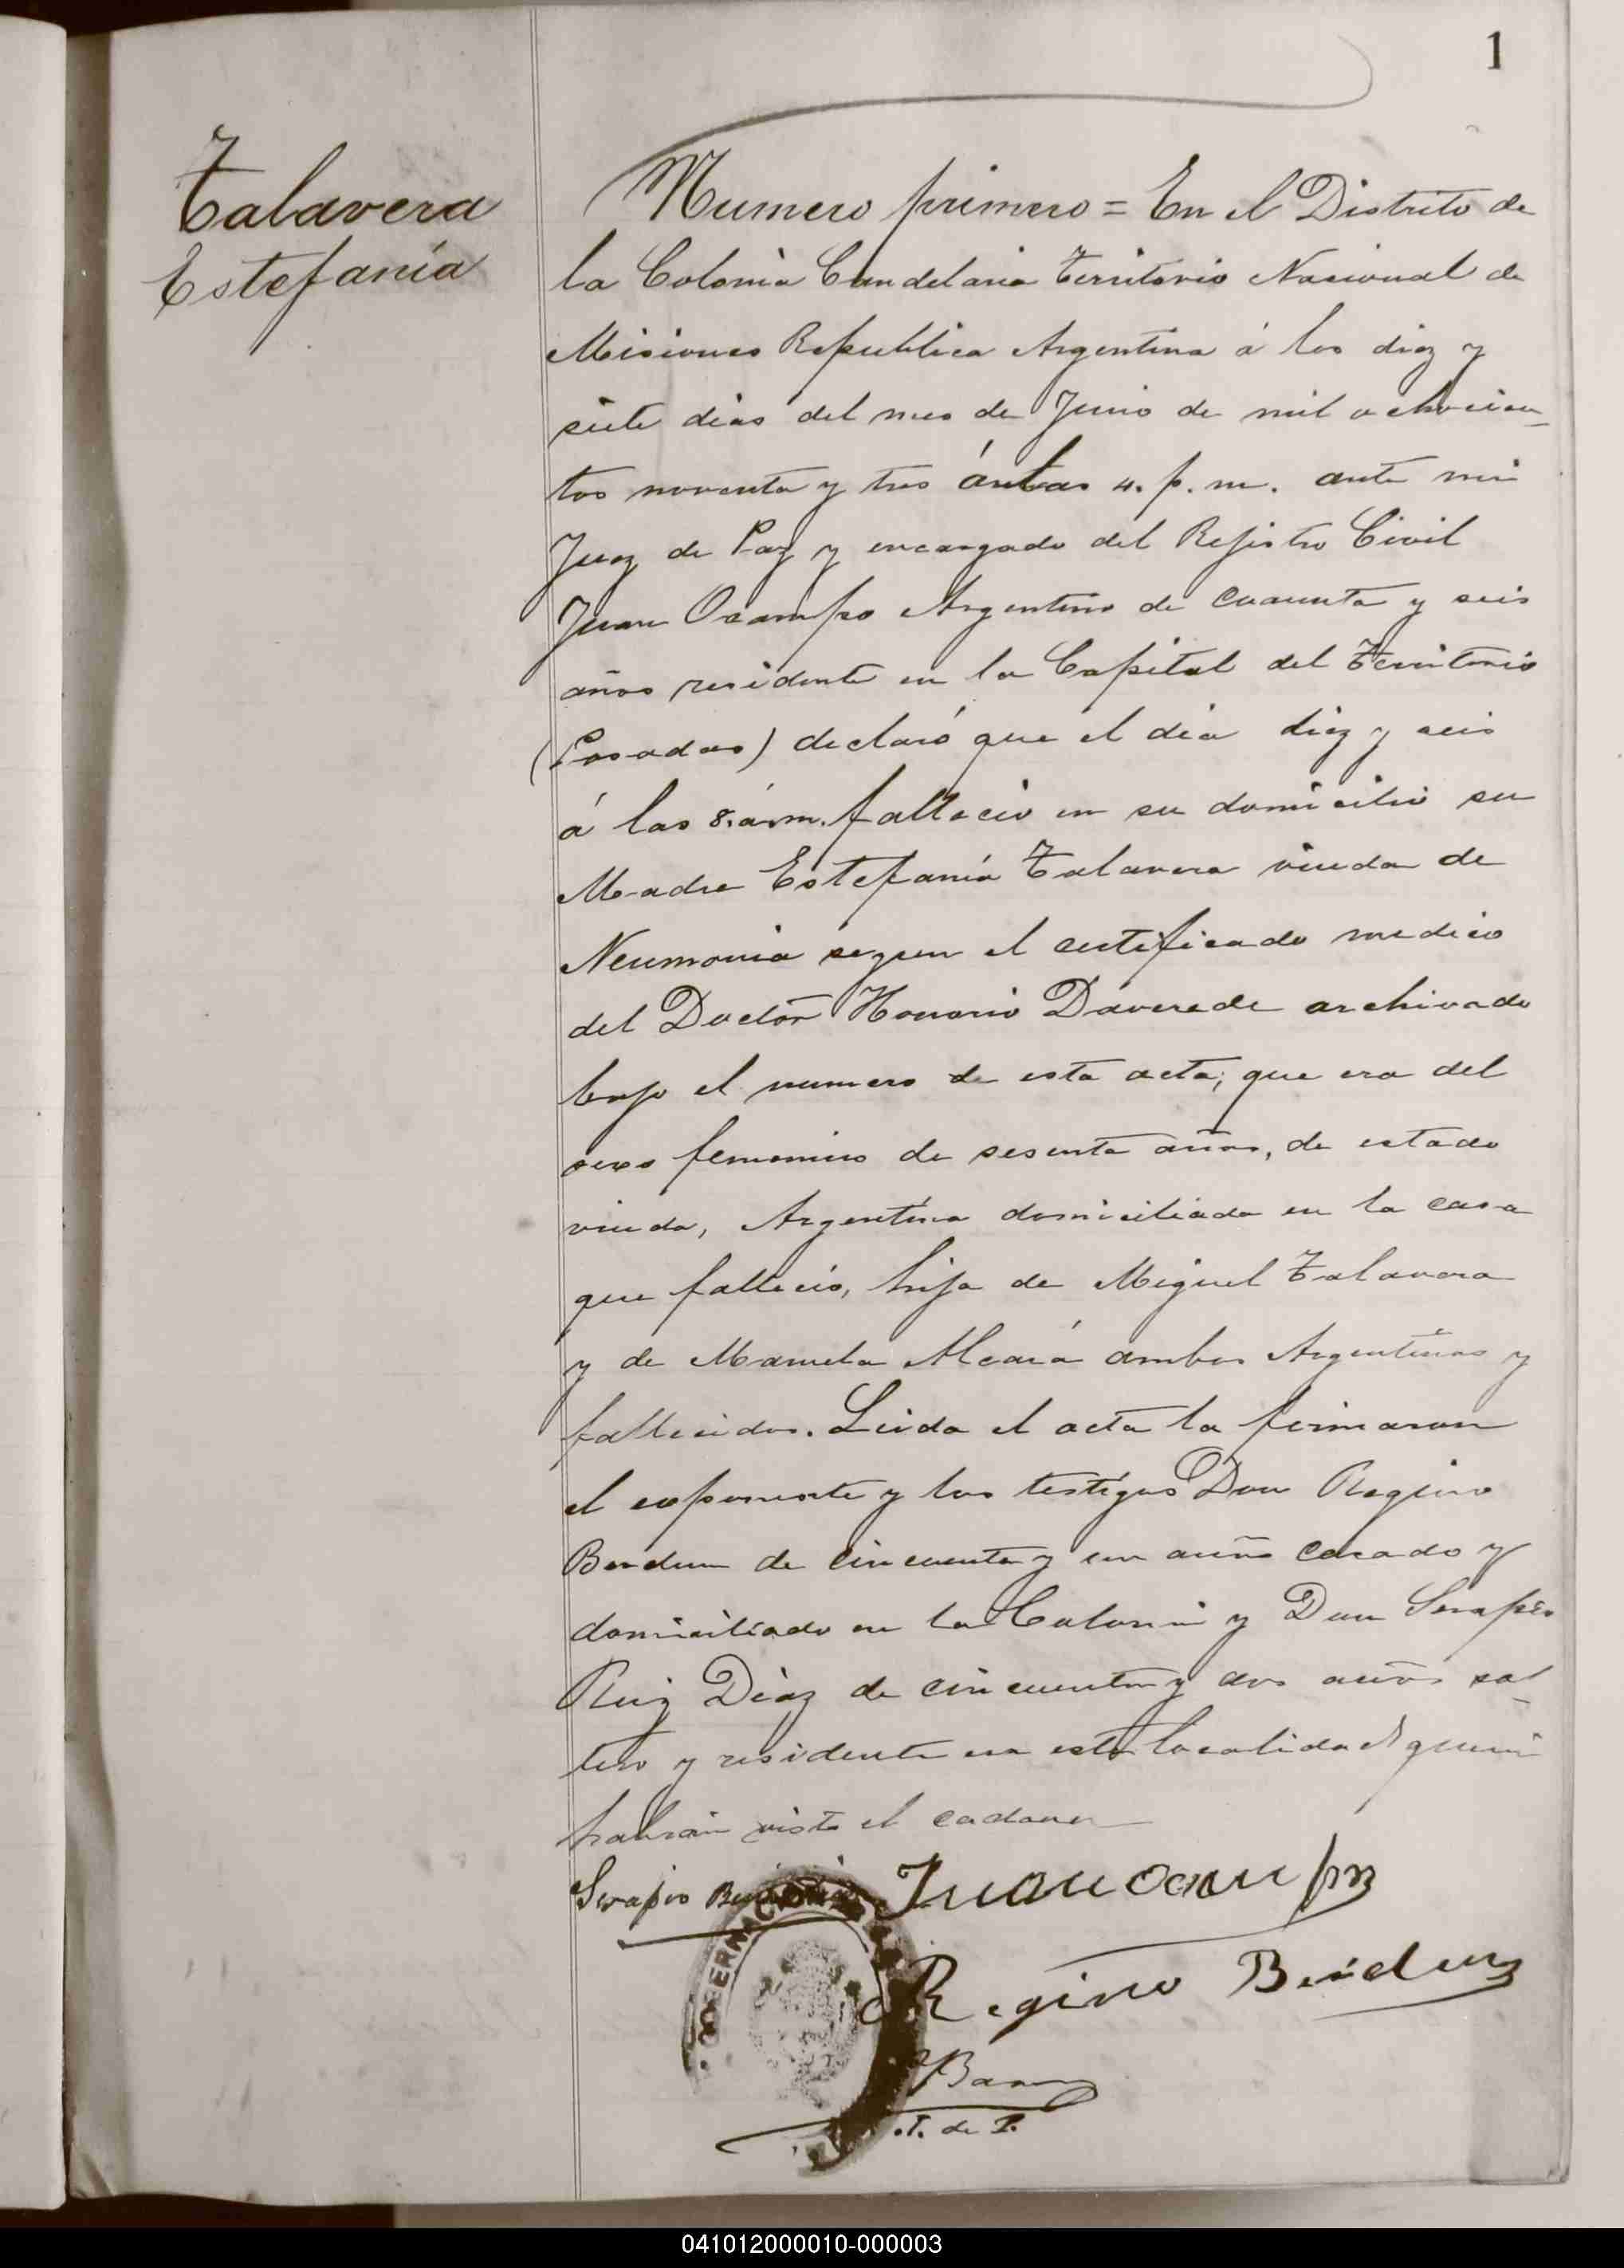 1
Talavera
Estefanía
Numero primero = En el Distrito de
la Colonia Candelaria Territorio Nacional de
Misiones Republica Argentina á los diez y
siete dias del mes de Junio de mil ochocien-
tos noventa y tres á las 4. p. m. ante mi
Juez de Paz y encargado del Rejistro Civil
Juan Ocampo Argentino de cuarenta y seis
años residente en la Capital del Territorio
(Posadas) declaró que el dia diez y seis
á las 8. a. m. fallecio en su domicilio su
Madre Estefanía Talavera viuda de
Neumonia segun el certificado medico
del Doctor Honorio Daverede archivado
bajo el numero de esta acta; que era del
sexo femenino de sesenta años, de estado
viuda, Argentina domiciliada en la casa
que fallecio, hija de Miguel Talavera
y de Manuela Alcará ambos Argentinos y
fallecidos. Leida el acta la firmaron
el exponente y los testigos Don Regino
de cincuenta y un años casado y
domiciliado en la Colonia y Don Serapio
Ruiz Diaz de cincuenta y dos años sol
tero y residente en esta localidad quienes
habian visto el cadaver
Serapio Juan Ocampo
GOBERNACION
Regino
J. de P.
041012000010-000003